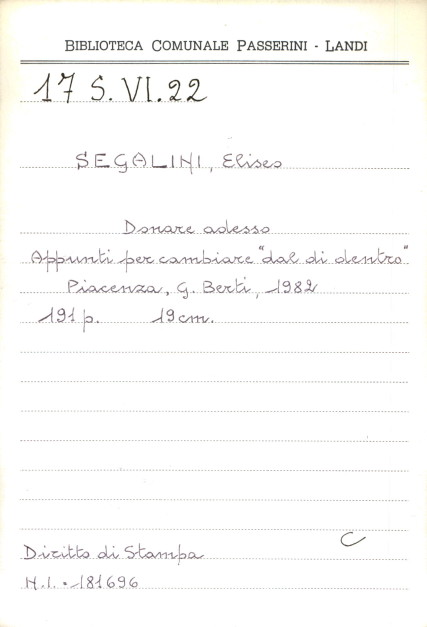 BIBLIOTECA COMUNALE PASSERINI - LANDI
17 S. VI. 22
SEGALINI, Eliseo
Donare adesso
Appunti per cambiare "dal di dentro"
Piacenza, G. Berti, 1982
191 p. 19 cm.
C
Diritto di Stampa
N.I. 181696